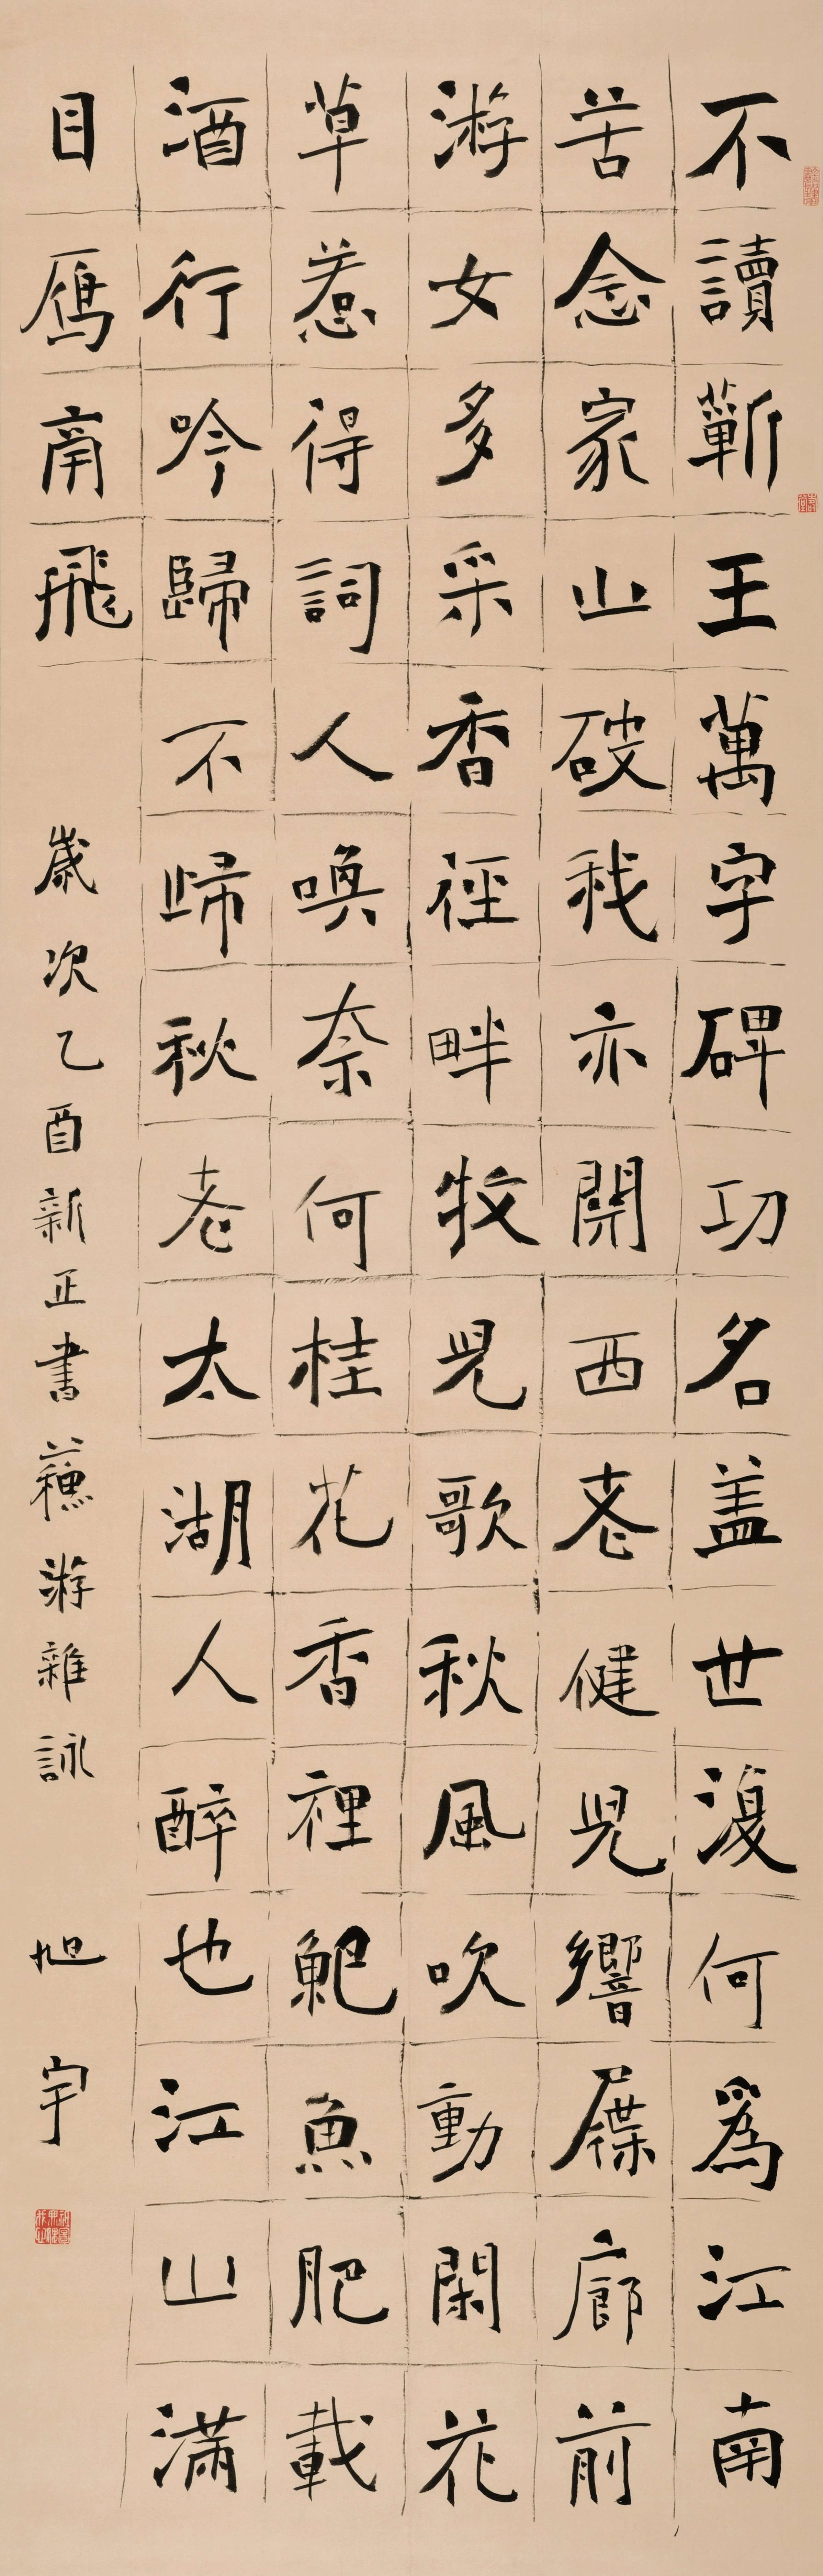 不讀蘄王萬字碑功名盖世復何爲江南
苦念家山破我亦開西老健兒響屧廊前
游女多采香徑畔牧兒歌秋風吹動閑花
草惹得詞人喚奈何桂花香裡䰾魚肥載
酒行吟歸不歸秋老太湖人醉也江山滿
目雁南飛
歲次乙酉新正書蘇游雜詠 旭宇